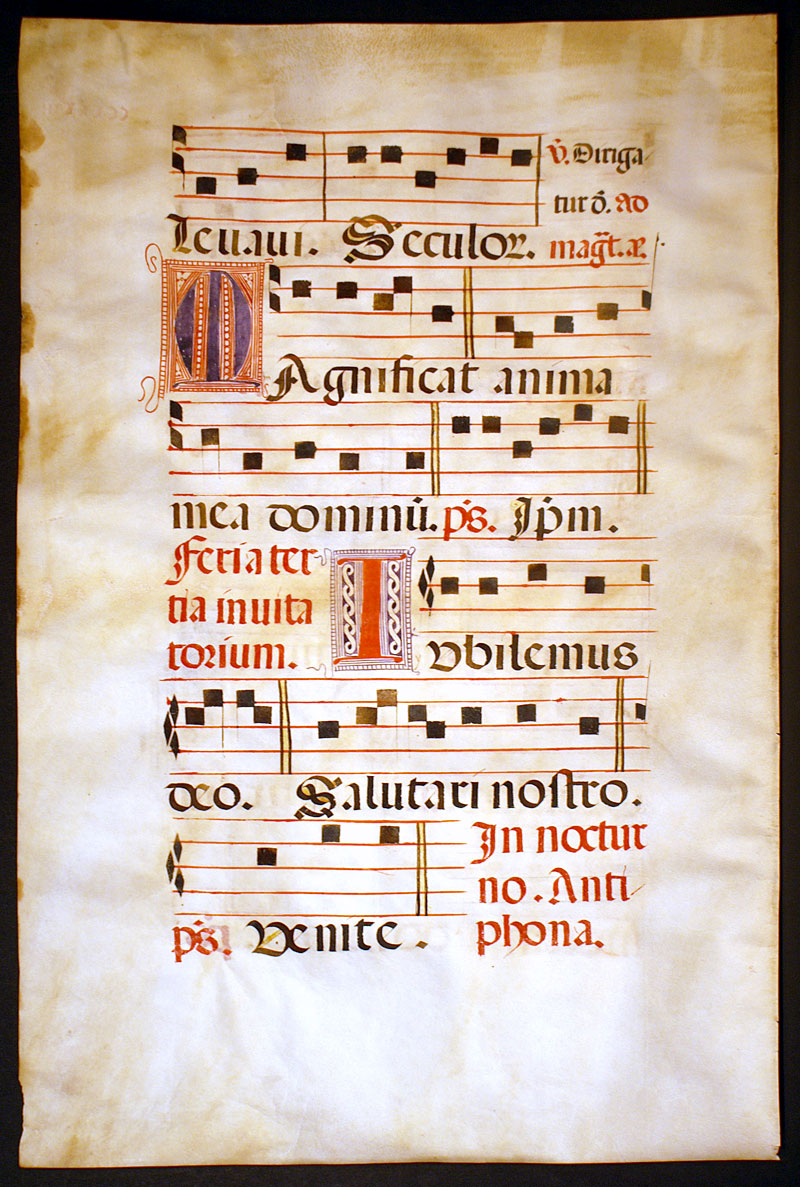 ℣. Diriga
tur ō. ad
levavi. Seculoꝝ. magt̄. æ.
MAgnificat anima
mea dominū. ps̄. Ip̄m.
Feria ter
tia invita
torium. IVbilemus
deo. Salutari nostro.
In noctur
no. Anti
ps̄. Venite. phona.